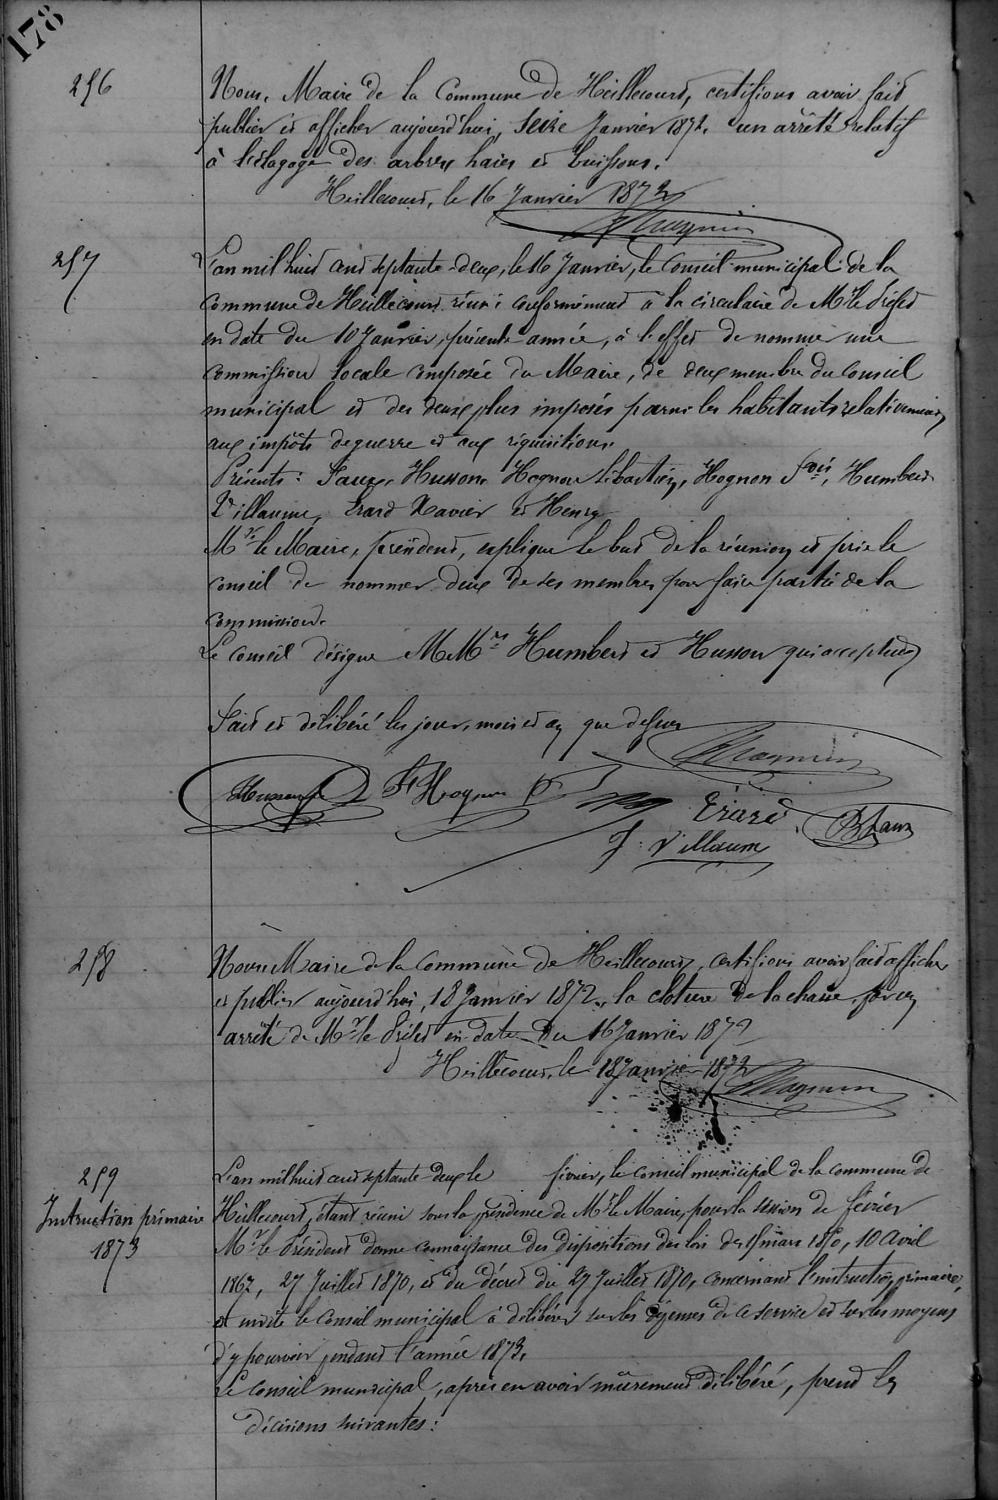 178
256
Nous, Maire de la Commune de Heillecourt, certifions avoir fait
publier et afficher aujourd'hui, seize Janvier 1872. un arrêté relatif
à l'élagage des arbres haies et buissons.
Heillecourt, le 16 Janvier 1872
257
L'an mil huit cent septante-deux, le 16 Janvier, le Conseil municipal de la
Commune de Heillecourt réuni conformément à la circulaire de Mr le Préfet
en date du 10 Janvier, présente année, à l'effet de nommer une
commission locale composée du Maire, de deux membres du Conseil
municipal et des deux plus imposés parmi les habitants relativement
aux impôts de guerre et aux réquisitions.
Présents: Faux, Husson, Hognon Sébastien, Hognon Fçois, Humbert
Villaume, Erard Xavier et Henry
Mr le Maire, président, explique le but de la réunion et prie le
conseil de nommer deux de ses membres pour faire partie de la
commission.
Le conseil désigne MMrs Humbert et Husson qui acceptent
Fait et délibéré les jour, mois et an que dessus
Husson F Hognon Erard
J. Villaume
258
Nous Maire de la Commune de Heillecourt, certifions avoir fait afficher
et publier aujourd'hui, 18 Janvier 1872, la clôture de la chasse par un
arrêté de Mr le Préfet en date du 16 Janvier 1872
Heillecourt, le 18 Janvier 1872
259
Instruction primaire
1873
L'an mil huit cent septante-deux le février, le conseil municipal de la commune de
Heillecourt, étant réuni sous la présidence de Mr le Maire, pour la session de février
Mr le Président donne connaissance des dispositions des lois des 15 mars 1850, 10 Avril
1867, 27 Juillet 1870, et du décret du 27 Juillet 1870, concernant l'instruction primaire,
et invite le Conseil municipal à délibérer sur les dépenses de ce service et sur les moyens
d'y pourvoir pendant l'année 1873.
Le Conseil municipal, après en avoir mûrement délibéré, prend les
décisions suivantes: